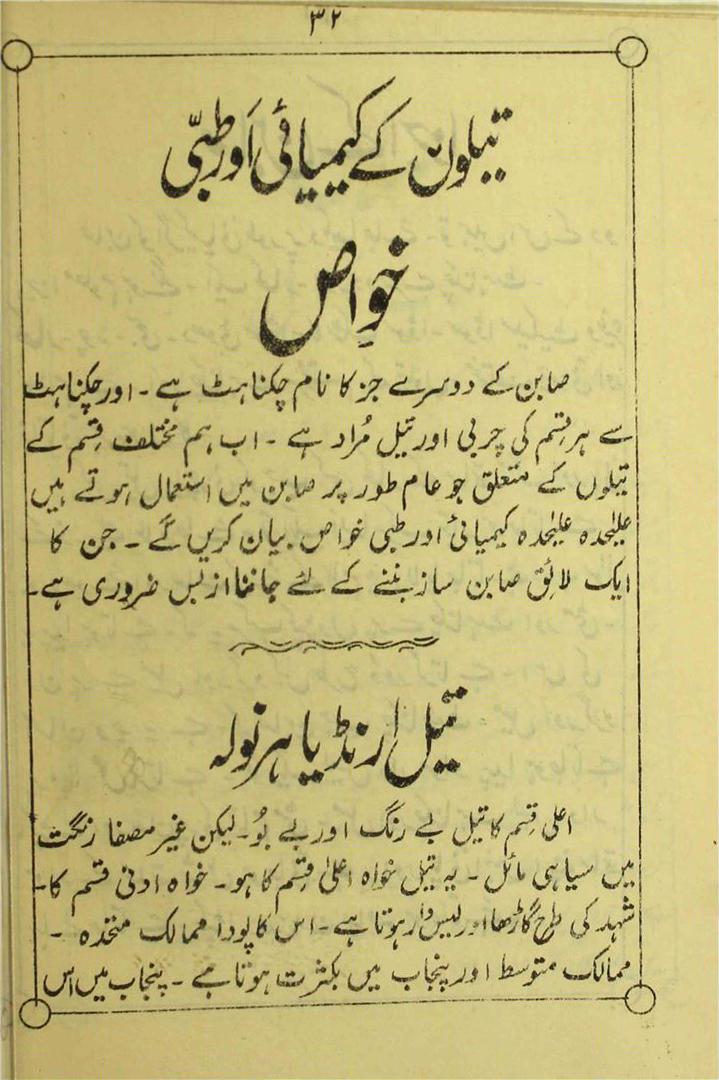 ۳۲
تیلون کے کیمیائی اَور طبّی
خواص
صابن کے دوسرے جز کا نام چکناہٹ ہے ۔ اور چکناہٹ
سے ہر قِسم کی چربی اور تیل مُراد ہے ۔ اب ہم مختلف قِسم کے
تیلوں کے متعلق جو عام طور پر صابن میں استعمال ہوتے ہیں
علیٰحدہ علیٰحدہ کیمیائی اور طبی خواص بیان کریں گے ۔ جن کا
ایک لائق صابن ساز بننے کے لئے جاننا از بس ضروری ہے۔
تیل ارنڈ یا ہرنولہ
اعلیٰ قِسم کا تیل بے رنگ اور بے بُو۔ لیکن غیر مصفا رنگت
میں سیاہی مائل ۔ یہ تیل خواہ اعلیٰ قِسم کا ہو ۔ خواہ ادنیٰ قسم کا۔
شہد کی طرح گاڑھا اور لیس دار ہوتا ہے ۔ اس کا پودا ممالک متحدہ ۔
ممالک متوسط اور پنجاب میں بکثرت ہوتا ہے ۔ پنجاب میں اس